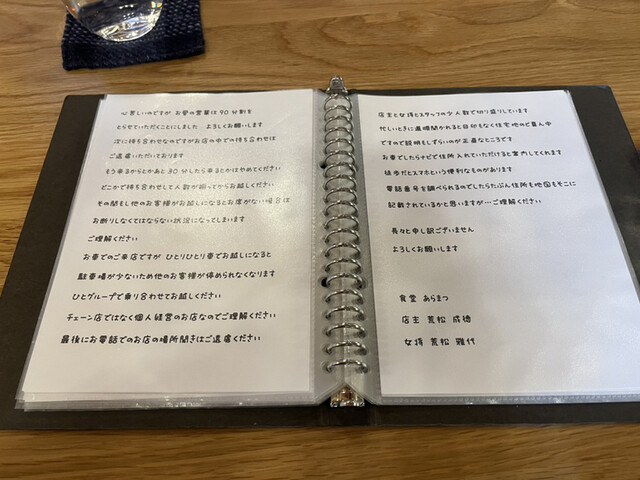 心苦しいのですが お昼の営業は90分制を
とらせていただくことにしました よろしくお願いします
次に待ち合わせなのですがお店の中での待ち合わせは
ご遠慮いただいております
もう来るからとかあと30分したら来るとかはやめてください
どこかで待ち合わせして人数が揃ってからお越しください
その間もし他のお客様がお越しになるとお席がない場合は
お断りしなくてはならない状況になってしまいます
ご理解ください
お車でのご来店ですが ひとりひとり車でお越しになると
駐車場が少ないため他のお客様が停められなくなります
ひとグループで乗り合わせてお越しください
チェーン店ではなく個人経営のお店なのでご理解ください
最後にお電話でのお店の場所聞きはご遠慮ください
店主と女将とスタッフの少人数で切り盛りしています
忙しいときに道順聞かれると目印もなく住宅地のど真ん中
ですので説明もしずらいのが正直なところです
お車でしたらナビで住所入れていただけると案内してくれます
徒歩だとスマホという便利なものがあります
電話番号を調べられるのでしたらたぶん住所も地図もそこに
記載されているかと思いますが…ご理解ください
長々と申し訳ございません
よろしくお願いします
食堂 あらまつ
店主 荒松 成徳
女将 荒松 雅代